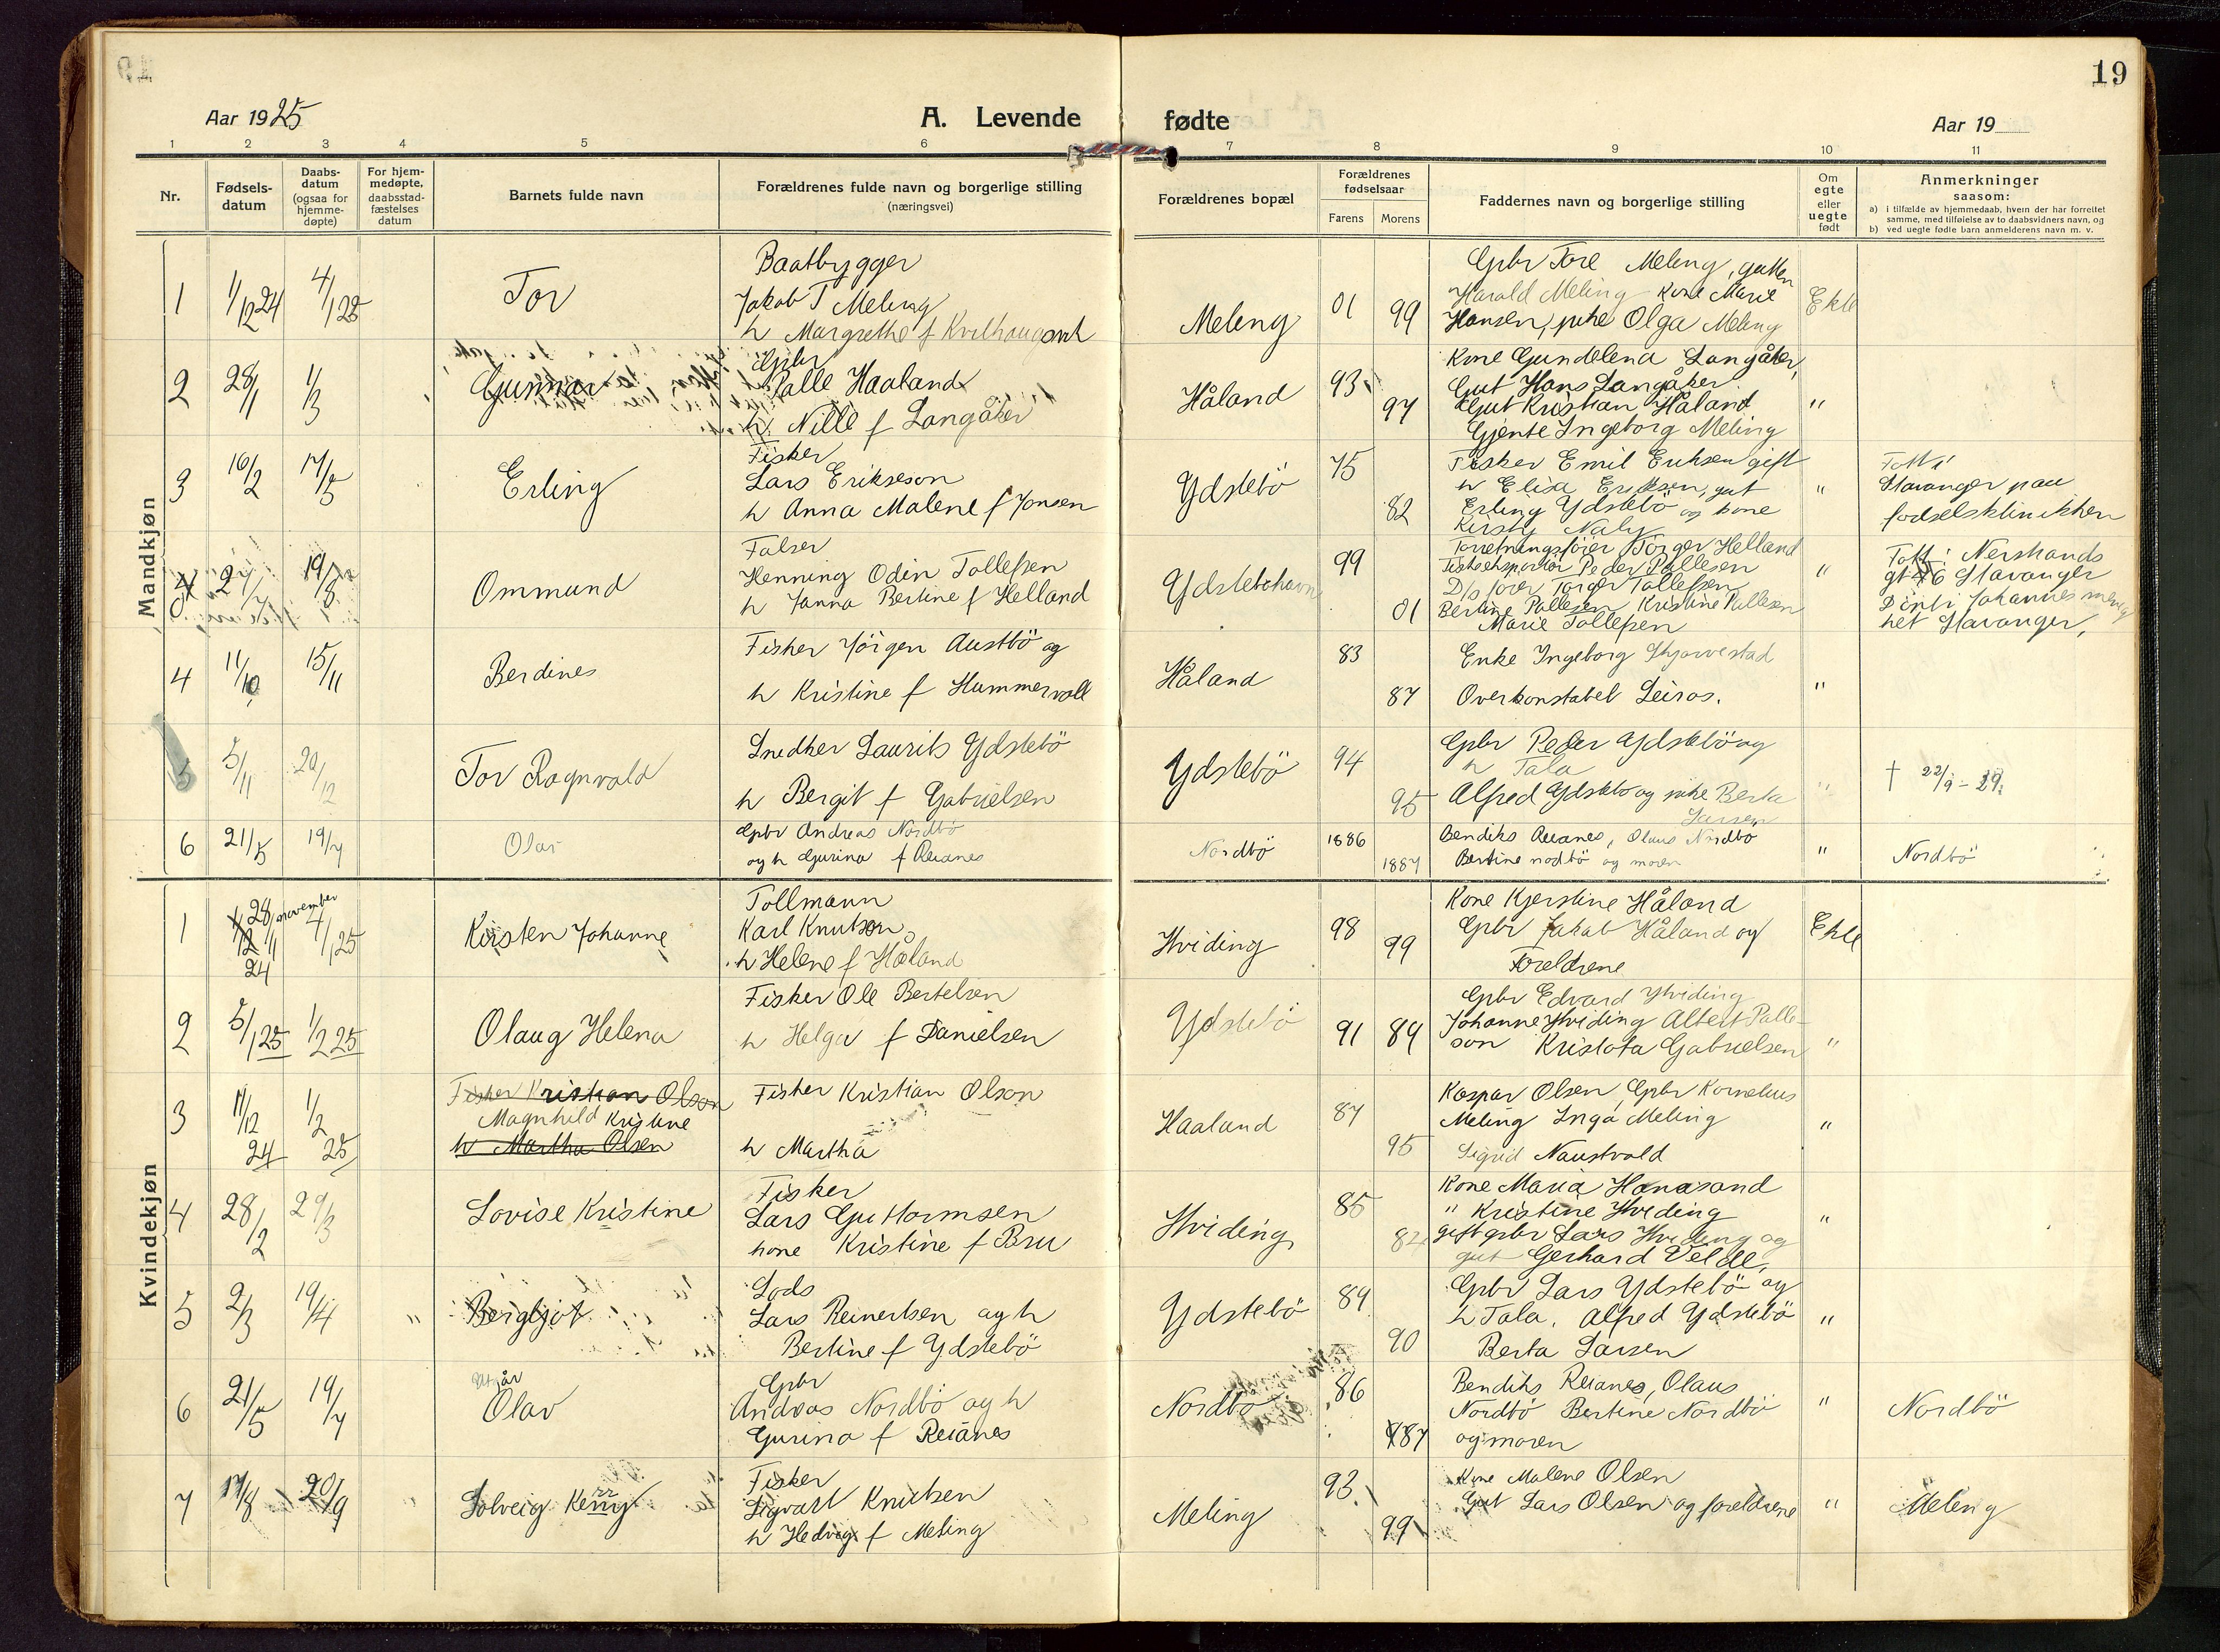 19
Aar 1925
A. Levende fødte
Aar 19
1 2 3 4 5 6 7 8 9 10 11
Nr.
Fødsels-
datum
Daabs-
datum
(ogsaa for
hjemme-
døpte)
For hjem-
medøpte,
daabsstad-
fæstelses
datum
Barnets fulde navn
Forældrenes fulde navn og borgerlige stilling
(næringsvei)
Forældrenes bopæl
Forældrenes
fødselsaar
Farens Morens
Faddernes navn og borgerlige stilling
Om
egte
eller
uegte
født
Anmerkninger
saasom:
a) i tilfælde av hjemmedaab, hvem der har forrettet
samme, med tilføielse av to daabsvidners navn, og
b) ved uegte fødte barn anmelderens navn m. v.
Mandkjøn
1 1/12 24 4/1 25 Tor
Baatbygger
Jakob T Meling
h Margrethe f
Meling 01 99
Gbr Tore Meling, gutten
Harald Meling kone Marie
Hansen, pike Olga Meling
Ekte
2 28/1 1/3 Gunnar
Gbr
Palle Haaland
h Nille f Langåker
Håland 93 97
Kone Gundelena Langåker,
Gut Hans Langåker
Gut Kristian Håland
Gjente Ingeborg Meling
"
3 16/2 17/5 Erling
Fisker
Lars Erikseson
h Anna Malene f Jonsen
Ydstebö 75 82
Fisker Emil Eriksen gift
h Elisa Eriksen, gut
Erling Ydstebö og kone
Kirsty
"
Født i
Stavanger paa
fødselsklinikken
27/7 19/8 Ommund
Falser
Henning Odin Tollefsen
h Janna Bertine f Helland
Ydsteböhavn 99 01
Forretningsfører Torger Helland
Fiskeeksportør Peder Pallesen
D/s fører Torger Tollefsen
Bertine Pallesen Kristine Pallesen
Marie Tollefsen
"
Født i Nerstrands
gt 46 Stavanger
Döpt i Johannes menig
het Stavanger,
4 11/10 15/11 Berdines
Fisker Jörgen Austbö og
h Kristine f Hummervoll
Håland 83 87
Enke Ingeborg Skjorvestad
Overkonstabel Leiros.
"
5 5/11 20/12 Tor Ragnvald
Snedker Laurits Ydstebö
h Bergit f Gabrielsen
Ydstebö 94 95
Gbr Peder Ydstebö og
h Tala
Alfred Ydstebö og pike Berta
Larsen
"
† 22/9 - 29.
6 21/5 19/7 Olav
Gbr Andreas Nordbö
og h Gurina f Reianes
Nordbö 1886 1887
Bendiks Reianes, Olaus Nordbö
Bertine nordbö og moren
"
Nordbö
Kvindekjøn
1 28/november
11
24
4/1 25 Kirsten Johanne
Tollmann
Karl Knutson
h Helene f Håland
Hviding 98 99
Kone Kjerstine Håland
Gbr Jakob Håland og
Foreldrene
Ekte
2 5/1 25 1/2 25 Olaug Helena
Fisker Ole Bertelsen
h Helga f Danielsen
Ydstebö 91 89
Gbr Edvard Hviding
Johanne Hviding Albert Palle-
son Kristofa Gabrielsen
"
3 11/12 24 1/2 25
Fisker Kristian Olson
Magnhild Kristine
h Martha Olsen
Fisker Kristian Olson
h Martha
Haaland 87 95
Kaspar Olsen, Gbr Kornelius
Meling Inga Meling
Sigrid Naustvold
"
4 28/2 29/3 Lovise Kristine
Fisker
Lars Guttormsen
kone Kristine f Bru
Hviding 85 82
Kone Maria Hanasand
" Kristine Hviding
gift gbr Lars Hviding og
gut Gerhard Velde,
"
5 2/3 19/4 " Bergljot
Lods
Lars Reinertsen og h
Bertine f Ydstebö
Ydstebö 89 90
Gbr Lars Ydstebö og
h Tala, Alfred Ydstebö
Berta Larsen
"
6 21/5 19/7 Utgår
Olav
Gbr
Andreas Nordbö og h
Gurina f Reianes
Nordbö 86 87
Bendiks Reianes, Olaus
Nordbö Bertine Nordbö
og moren
"
Nordbö
7 17/8 20/9 Solveig Kenny
Fisker
Sigvart Knutsen
h Hedvig f Meling
Meling 93 99
Kone Malene Olsen
Gut Lars Olsen og foreldrene
"
Meling